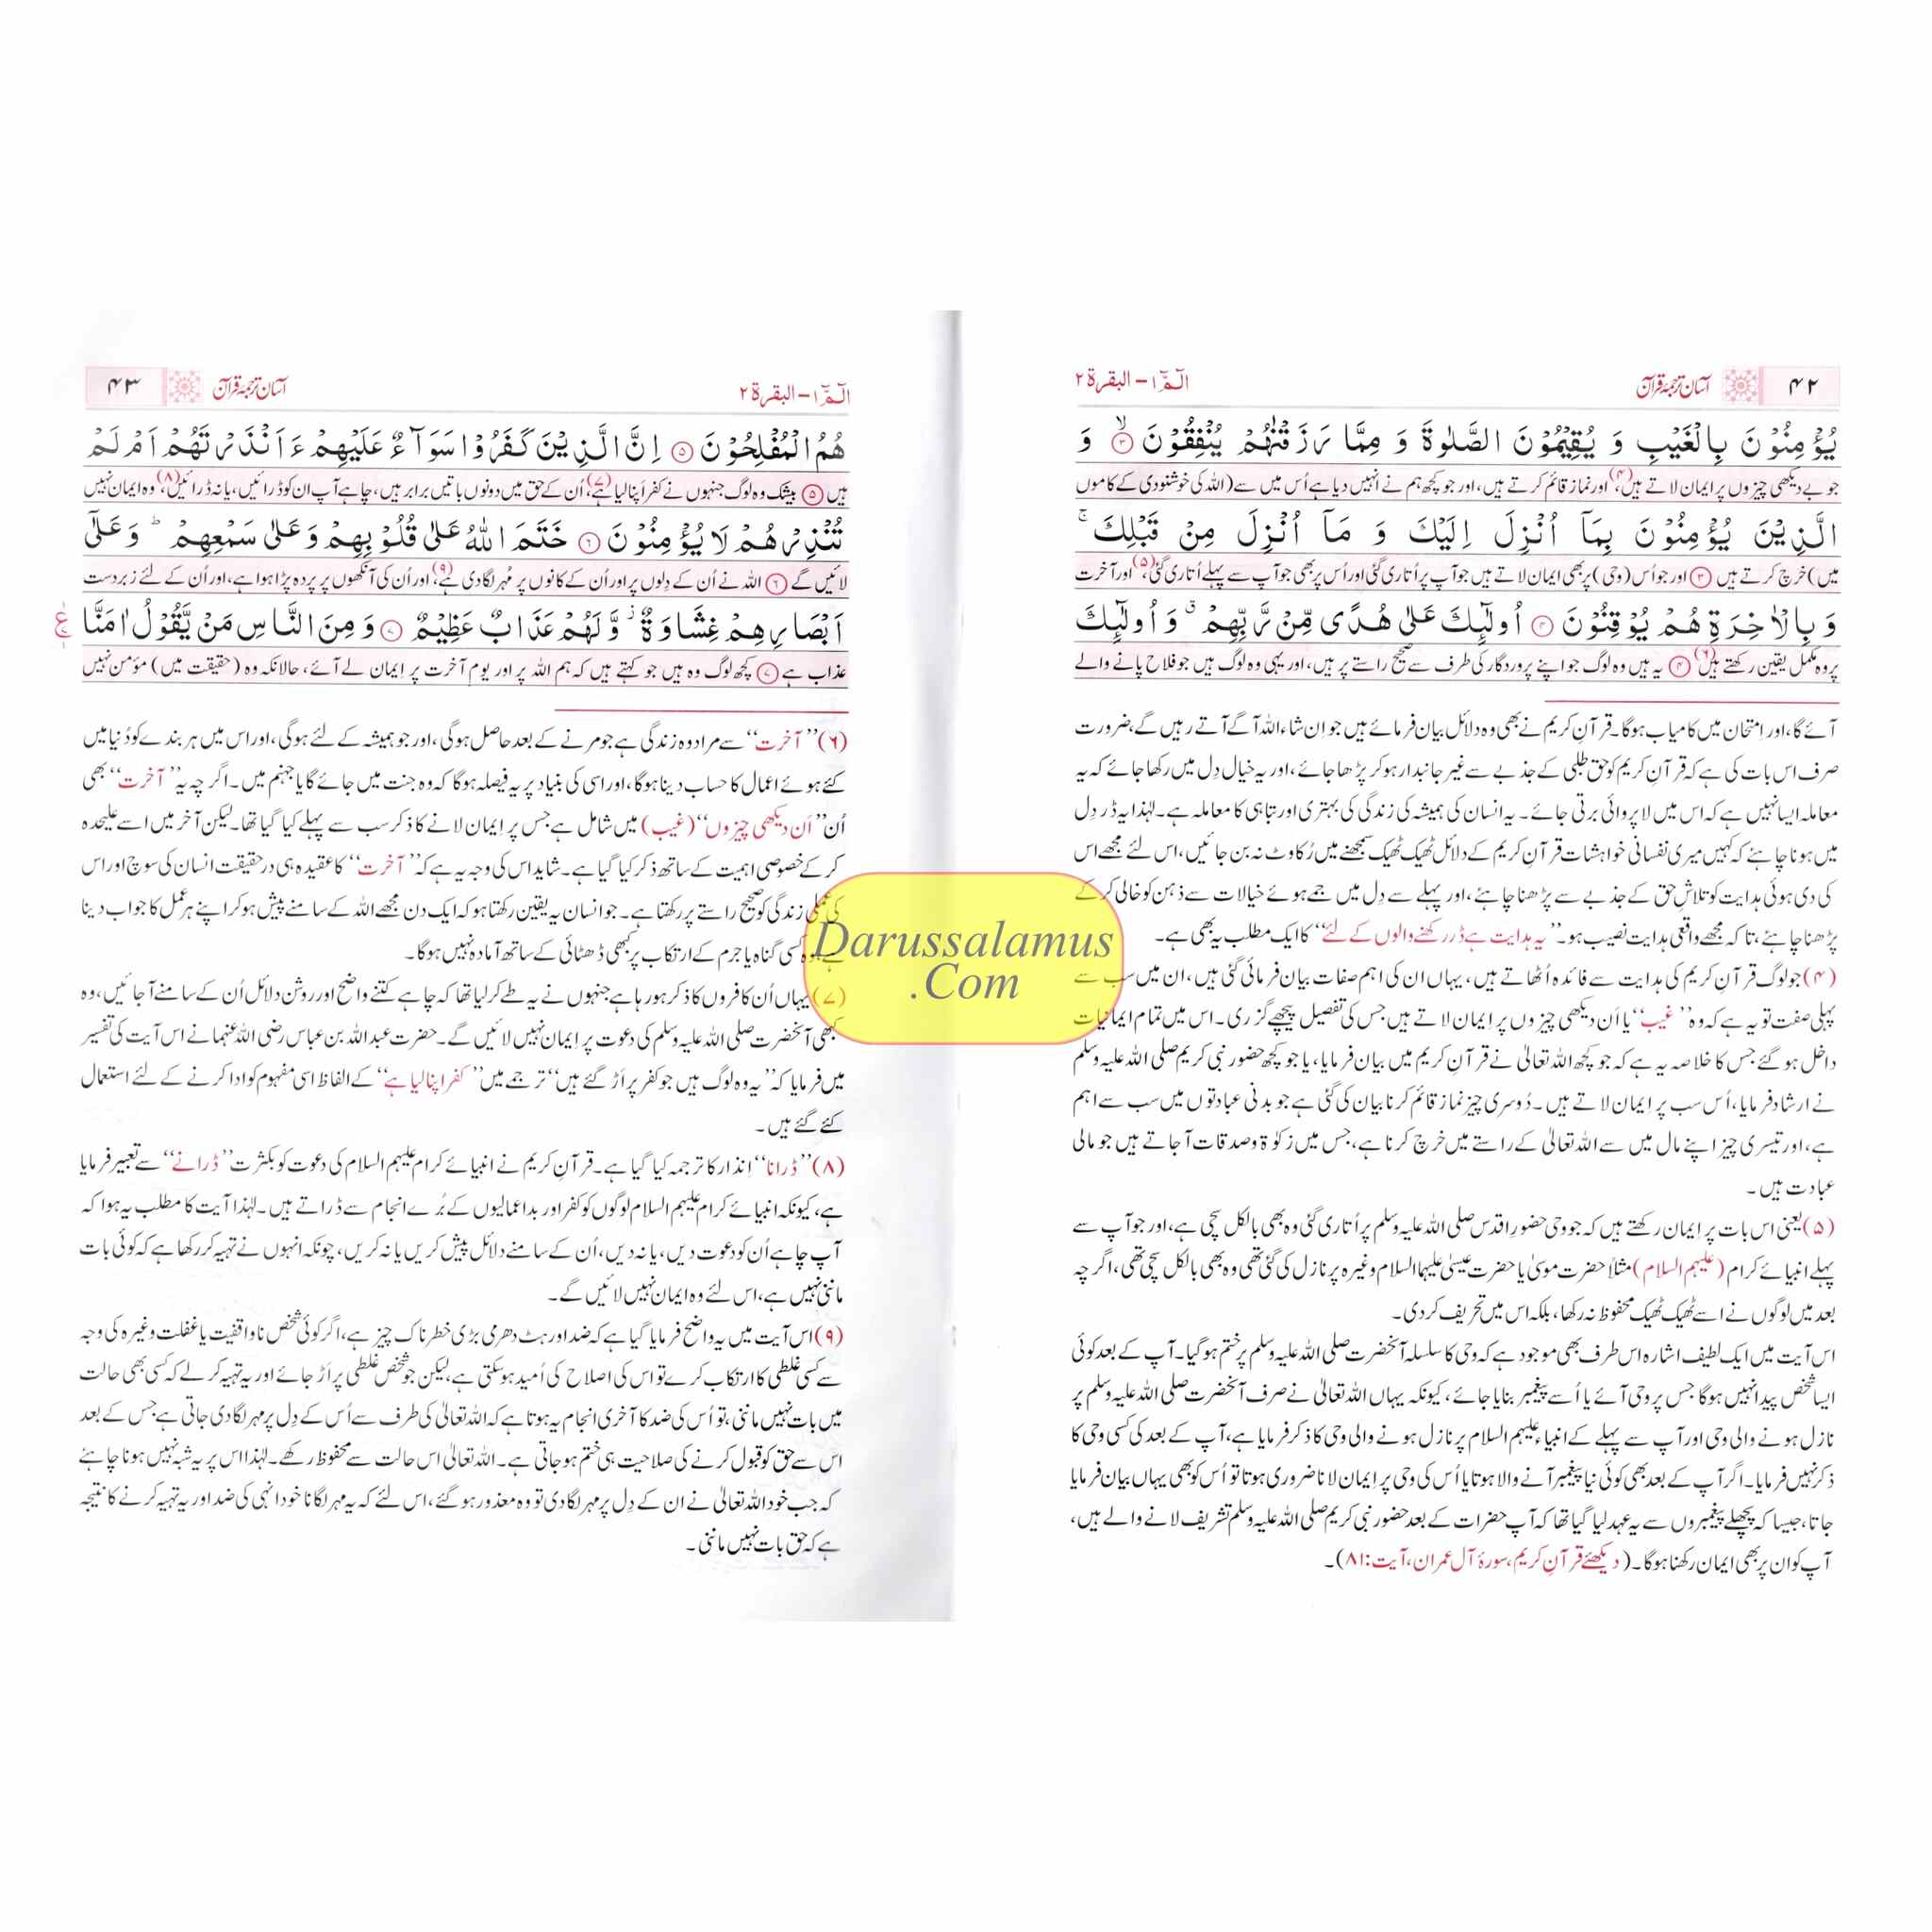 ۴۲ آسان ترجمۂ قرآن الٓمّٓ ۱ – البقرۃ ۲
يُؤۡمِنُوۡنَ بِالۡغَيۡبِ وَ يُقِيۡمُوۡنَ الصَّلٰوةَ وَ مِمَّا رَزَقۡنٰهُمۡ يُنۡفِقُوۡنَ ۙ﴿۳﴾ وَ
جو بے دیکھی چیزوں پر ایمان لاتے ہیں(۴)، اور نماز قائم کرتے ہیں، اور جو کچھ ہم نے انہیں دیا ہے اُس میں سے (اللہ کی خوشنودی کے کاموں
الَّذِيۡنَ يُؤۡمِنُوۡنَ بِمَاۤ اُنۡزِلَ اِلَيۡكَ وَ مَاۤ اُنۡزِلَ مِنۡ قَبۡلِكَ ۚ
میں) خرچ کرتے ہیں ﴿۳﴾ اور جو اُس (وحی) پر بھی ایمان لاتے ہیں جو آپ پر اُتاری گئی اور اُس پر بھی جو آپ سے پہلے اُتاری گئی(۵)، اور آخرت
وَ بِالۡاٰخِرَةِ هُمۡ يُوۡقِنُوۡنَ ﴿۴﴾ اُولٰٓئِكَ عَلٰى هُدًى مِّنۡ رَّبِّهِمۡ ۗ وَ اُولٰٓئِكَ
پر وہ مکمل یقین رکھتے ہیں(۶) ﴿۴﴾ یہ ہیں وہ لوگ جو اپنے پروردگار کی طرف سے صحیح راستے پر ہیں، اور یہی وہ لوگ ہیں جو فلاح پانے والے
آئے گا، اور اِمتحان میں کامیاب ہوگا۔ قرآنِ کریم نے بھی وہ دلائل بیان فرمائے ہیں جو اِن شاء اللہ آگے آتے رہیں گے، ضرورت
صرف اس بات کی ہے کہ قرآنِ کریم کو حق طلبی کے جذبے سے غیر جانبدار ہوکر پڑھا جائے، اور یہ خیال دِل میں رکھا جائے کہ یہ
معاملہ ایسا نہیں ہے کہ اس میں لاپروائی برتی جائے۔ یہ انسان کی ہمیشہ کی زندگی کی بہتری اور تباہی کا معاملہ ہے۔ لہٰذا یہ ڈر دِل
میں ہونا چاہئے کہ کہیں میری نفسانی خواہشات قرآنِ کریم کے دلائل ٹھیک ٹھیک سمجھنے میں رُکاوٹ نہ بن جائیں، اس لئے مجھے اس
کی دی ہوئی ہدایت کو تلاشِ حق کے جذبے سے پڑھنا چاہئے، اور پہلے سے دِل میں جمے ہوئے خیالات سے ذہن کو خالی کرکے
پڑھنا چاہئے، تاکہ مجھے واقعی ہدایت نصیب ہو۔ ”یہ ہدایت ہے ڈر رکھنے والوں کے لئے“ کا ایک مطلب یہ بھی ہے۔
(۴) جو لوگ قرآنِ کریم کی ہدایت سے فائدہ اُٹھاتے ہیں، یہاں ان کی اہم صفات بیان فرمائی گئی ہیں، ان میں سب سے
پہلی صفت تو یہ ہے کہ وہ ”غیب“ یا اَن دیکھی چیزوں پر اِیمان لاتے ہیں جس کی تفصیل پیچھے گزری۔ اس میں تمام ایمانیات
داخل ہوگئے جس کا خلاصہ یہ ہے کہ جو کچھ اللہ تعالیٰ نے قرآنِ کریم میں بیان فرمایا، یا جو کچھ حضور نبی کریم صلی اللہ علیہ وسلم
نے ارشاد فرمایا، اُس سب پر اِیمان لاتے ہیں۔ دُوسری چیز نماز قائم کرنا بیان کی گئی ہے جو بدنی عبادتوں میں سب سے اہم
ہے، اور تیسری چیز اپنے مال میں سے اللہ تعالیٰ کے راستے میں خرچ کرنا ہے، جس میں زکوٰۃ و صدقات آجاتے ہیں جو مالی
عبادت ہیں۔
(۵) یعنی اس بات پر اِیمان رکھتے ہیں کہ جو وحی حضورِ اقدس صلی اللہ علیہ وسلم پر اُتاری گئی وہ بھی بالکل سچی ہے، اور جو آپ سے
پہلے انبیائے کرام (علیہم السلام) مثلاً حضرت موسیٰ یا حضرت عیسیٰ علیہما السلام وغیرہ پر نازل کی گئی تھی وہ بھی بالکل سچی تھی، اگرچہ
بعد میں لوگوں نے اسے ٹھیک ٹھیک محفوظ نہ رکھا، بلکہ اس میں تحریف کردی۔
اس آیت میں ایک لطیف اشارہ اس طرف بھی موجود ہے کہ وحی کا سلسلہ آنحضرت صلی اللہ علیہ وسلم پر ختم ہوگیا۔ آپ کے بعد کوئی
ایسا شخص پیدا نہیں ہوگا جس پر وحی آئے یا اُسے پیغمبر بنایا جائے، کیونکہ یہاں اللہ تعالیٰ نے صرف آنحضرت صلی اللہ علیہ وسلم پر
نازل ہونے والی وحی اور آپ سے پہلے کے انبیاء علیہم السلام پر نازل ہونے والی وحی کا ذکر فرمایا ہے، آپ کے بعد کی کسی وحی کا
ذکر نہیں فرمایا۔ اگر آپ کے بعد بھی کوئی نیا پیغمبر آنے والا ہوتا یا اُس کی وحی پر اِیمان لانا ضروری ہوتا تو اُس کو بھی یہاں بیان فرمایا
جاتا، جیسا کہ پچھلے پیغمبروں سے یہ عہد لیا گیا تھا کہ آپ حضرات کے بعد حضور نبی کریم صلی اللہ علیہ وسلم تشریف لانے والے ہیں،
آپ کو ان پر بھی ایمان رکھنا ہوگا۔ (دیکھئے قرآنِ کریم، سورۂ آل عمران، آیت: ۸۱)۔
الٓمّٓ ۱ – البقرۃ ۲ آسان ترجمۂ قرآن ۴۳
هُمُ الۡمُفۡلِحُوۡنَ ﴿۵﴾ اِنَّ الَّذِيۡنَ كَفَرُوۡا سَوَآءٌ عَلَيۡهِمۡ ءَاَنۡذَرۡتَهُمۡ اَمۡ لَمۡ
ہیں ﴿۵﴾ بیشک وہ لوگ جنہوں نے کفر اَپنا لیا ہے(۷)، اُن کے حق میں دونوں باتیں برابر ہیں، چاہے آپ ان کو ڈرائیں، یا نہ ڈرائیں(۸)، وہ ایمان نہیں
تُنۡذِرۡهُمۡ لَا يُؤۡمِنُوۡنَ ﴿۶﴾ خَتَمَ اللّٰهُ عَلٰى قُلُوۡبِهِمۡ وَعَلٰى سَمۡعِهِمۡ ؕ وَعَلٰٓى
لائیں گے ﴿۶﴾ اللہ نے اُن کے دِلوں پر اور اُن کے کانوں پر مُہر لگا دی ہے(۹)، اور اُن کی آنکھوں پر پردہ پڑا ہوا ہے، اور اُن کے لئے زبردست
اَبۡصَارِهِمۡ غِشَاوَةٌ ۫ وَّلَهُمۡ عَذَابٌ عَظِيۡمٌ ﴿۷﴾ وَمِنَ النَّاسِ مَنۡ يَّقُوۡلُ اٰمَنَّا
عذاب ہے ﴿۷﴾ کچھ لوگ وہ ہیں جو کہتے ہیں کہ ہم اللہ پر اور یومِ آخرت پر اِیمان لے آئے، حالانکہ وہ (حقیقت میں) مؤمن نہیں
(۶) ”آخرت“ سے مراد وہ زندگی ہے جو مرنے کے بعد حاصل ہوگی، اور جو ہمیشہ کے لئے ہوگی، اور اس میں ہر بندے کو دُنیا میں
کئے ہوئے اعمال کا حساب دینا ہوگا، اور اسی کی بنیاد پر یہ فیصلہ ہوگا کہ وہ جنت میں جائے گا یا جہنم میں۔ اگرچہ یہ ”آخرت“ بھی
اُن ”اَن دیکھی چیزوں“ (غیب) میں شامل ہے جس پر اِیمان لانے کا ذکر سب سے پہلے کیا گیا تھا۔ لیکن آخر میں اسے علیحدہ
کرکے خصوصی اہمیت کے ساتھ ذکر کیا گیا ہے۔ شاید اس کی وجہ یہ ہے کہ ”آخرت“ کا عقیدہ ہی درحقیقت انسان کی سوچ اور اس
کی عملی زندگی کو صحیح راستے پر رکھتا ہے۔ جو انسان یہ یقین رکھتا ہو کہ ایک دن مجھے اللہ کے سامنے پیش ہوکر اپنے ہر عمل کا جواب دینا
ہے، وہ کسی گناہ یا جرم کے ارتکاب پر کبھی ڈھٹائی کے ساتھ آمادہ نہیں ہوگا۔
(۷) یہاں اُن کافروں کا ذکر ہو رہا ہے جنہوں نے یہ طے کرلیا تھا کہ چاہے کتنے واضح اور روشن دلائل اُن کے سامنے آجائیں، وہ
کبھی آنحضرت صلی اللہ علیہ وسلم کی دعوت پر اِیمان نہیں لائیں گے۔ حضرت عبداللہ بن عباس رضی اللہ عنہما نے اس آیت کی تفسیر
میں فرمایا کہ ”یہ وہ لوگ ہیں جو کفر پر اَڑ گئے ہیں“ ترجمے میں ”کفر اپنا لیا ہے“ کے الفاظ اسی مفہوم کو ادا کرنے کے لئے استعمال
کئے گئے ہیں۔
(۸) ”ڈرانا“ اِنذار کا ترجمہ کیا گیا ہے۔ قرآنِ کریم نے انبیائے کرام علیہم السلام کی دعوت کو بکثرت ”ڈرانے“ سے تعبیر فرمایا
ہے، کیونکہ انبیائے کرام علیہم السلام لوگوں کو کفر اور بداعمالیوں کے بُرے انجام سے ڈراتے ہیں۔ لہٰذا آیت کا مطلب یہ ہوا کہ
آپ چاہے اُن کو دعوت دیں، یا نہ دیں، اُن کے سامنے دلائل پیش کریں یا نہ کریں، چونکہ انہوں نے تہیہ کر رکھا ہے کہ کوئی بات
ماننی نہیں ہے، اس لئے وہ ایمان نہیں لائیں گے۔
(۹) اس آیت میں یہ واضح فرمایا گیا ہے کہ ضد اور ہٹ دھرمی بڑی خطرناک چیز ہے، اگر کوئی شخص ناواقفیت یا غفلت وغیرہ کی وجہ
سے کسی غلطی کا ارتکاب کرے تو اس کی اصلاح کی اُمید ہوسکتی ہے، لیکن جو شخص غلطی پر اَڑ جائے اور یہ تہیہ کرلے کہ کسی بھی حالت
میں بات نہیں ماننی، تو اُس کی ضد کا آخری انجام یہ ہوتا ہے کہ اللہ تعالیٰ کی طرف سے اُس کے دِل پر مہر لگا دی جاتی ہے جس کے بعد
اس سے حق کو قبول کرنے کی صلاحیت ہی ختم ہوجاتی ہے۔ اللہ تعالیٰ اس حالت سے محفوظ رکھے۔ لہٰذا اس پر یہ شبہ نہیں ہونا چاہئے
کہ جب خود اللہ تعالیٰ نے ان کے دِل پر مہر لگا دی تو وہ معذور ہوگئے، اس لئے کہ یہ مہر لگانا خود انہی کی ضد اور یہ تہیہ کرنے کا نتیجہ
ہے کہ حق بات نہیں ماننی۔
Darussalamus
.Com